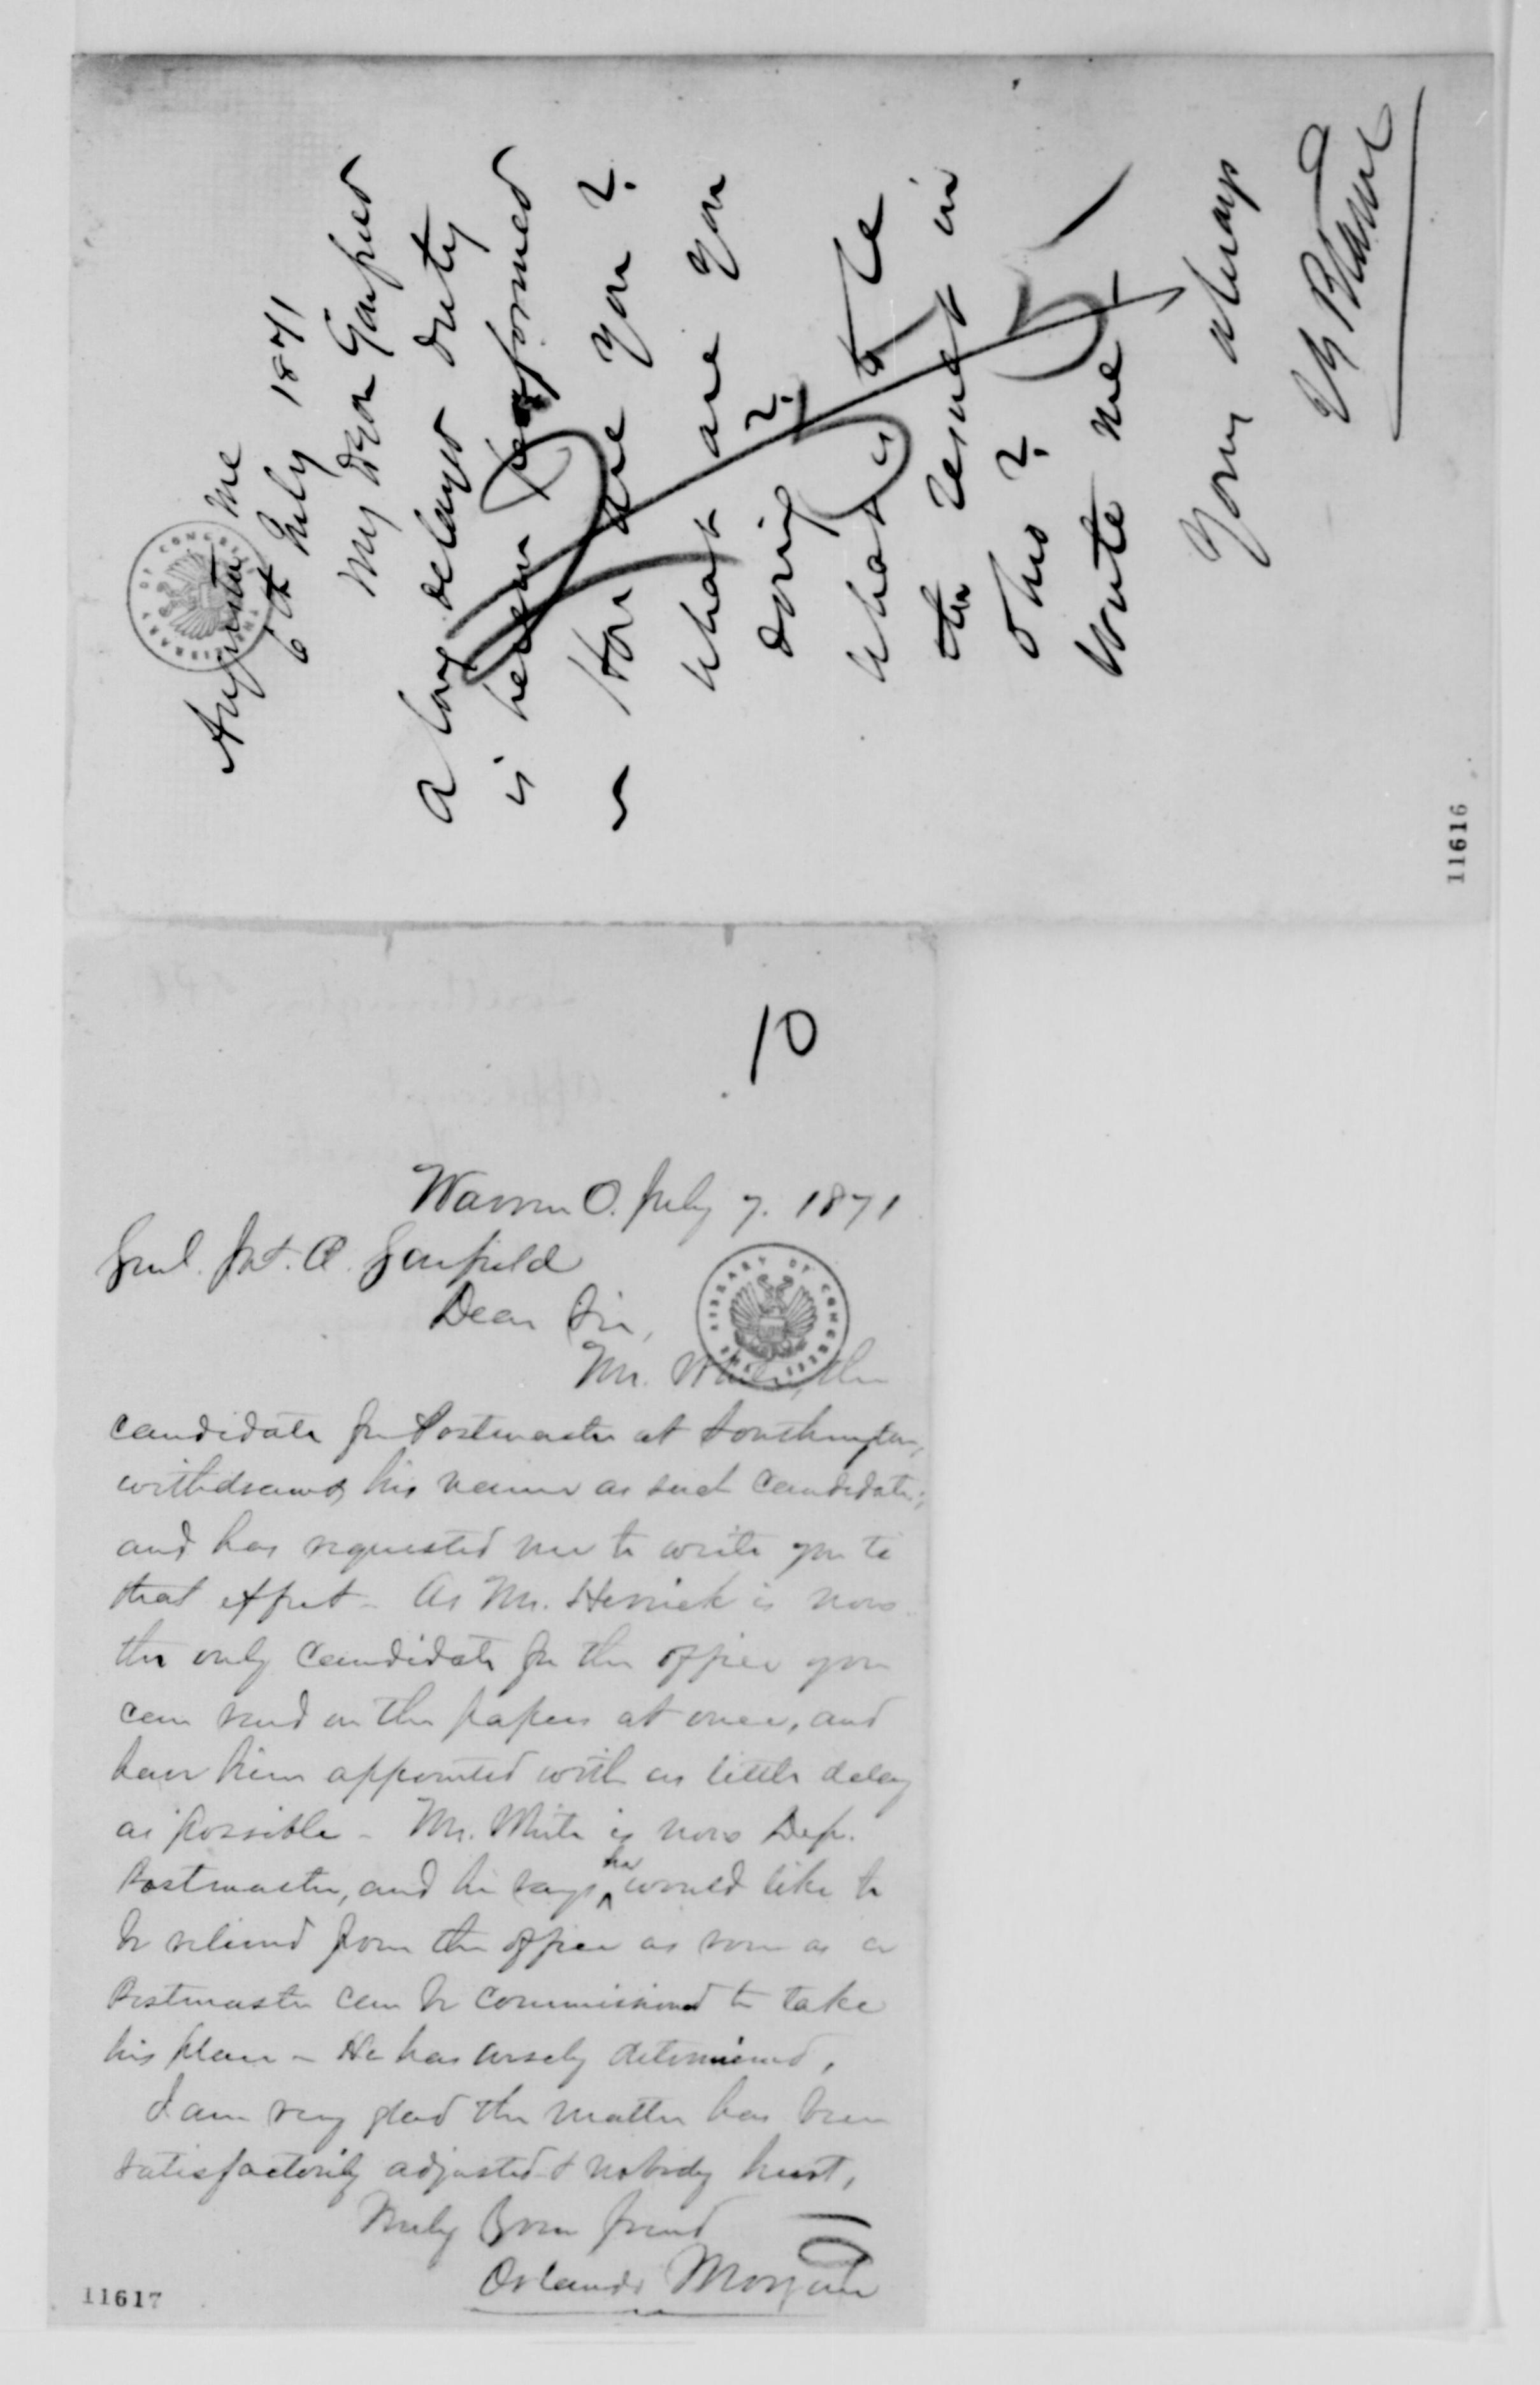 Augusta Me
6th July 1871
My Dear Garfield
A long delayed duty
is herein performed
~ How are you?
What are you
doing?
What is to be
the result in
Ohio?
Write me
Yours always
J G Blaine
11616
10
Warren O. July 7. 1871
Genl. Jas. A. Garfield
Dear Sir,
Mr. White, the
candidate for Postmaster at Southington,
withdraws his name as such candidate;
and has requested me to write you to
that effect - As Mr. Herrick is now
the only candidate for the office you
can send on the papers at once, and
have him appointed with as little delay
as possible - Mr. White is now Dep.
Postmaster, and he says he would like to
be relieved from the office as soon as a
Postmaster can be commissioned to take
his place - He has wisely determined,
I am very glad the matter has been
satisfactorily adjusted & nobody hurt,
Truly Your friend
Orlando Morgan
11617
THE LIBRARY OF CONGRESS